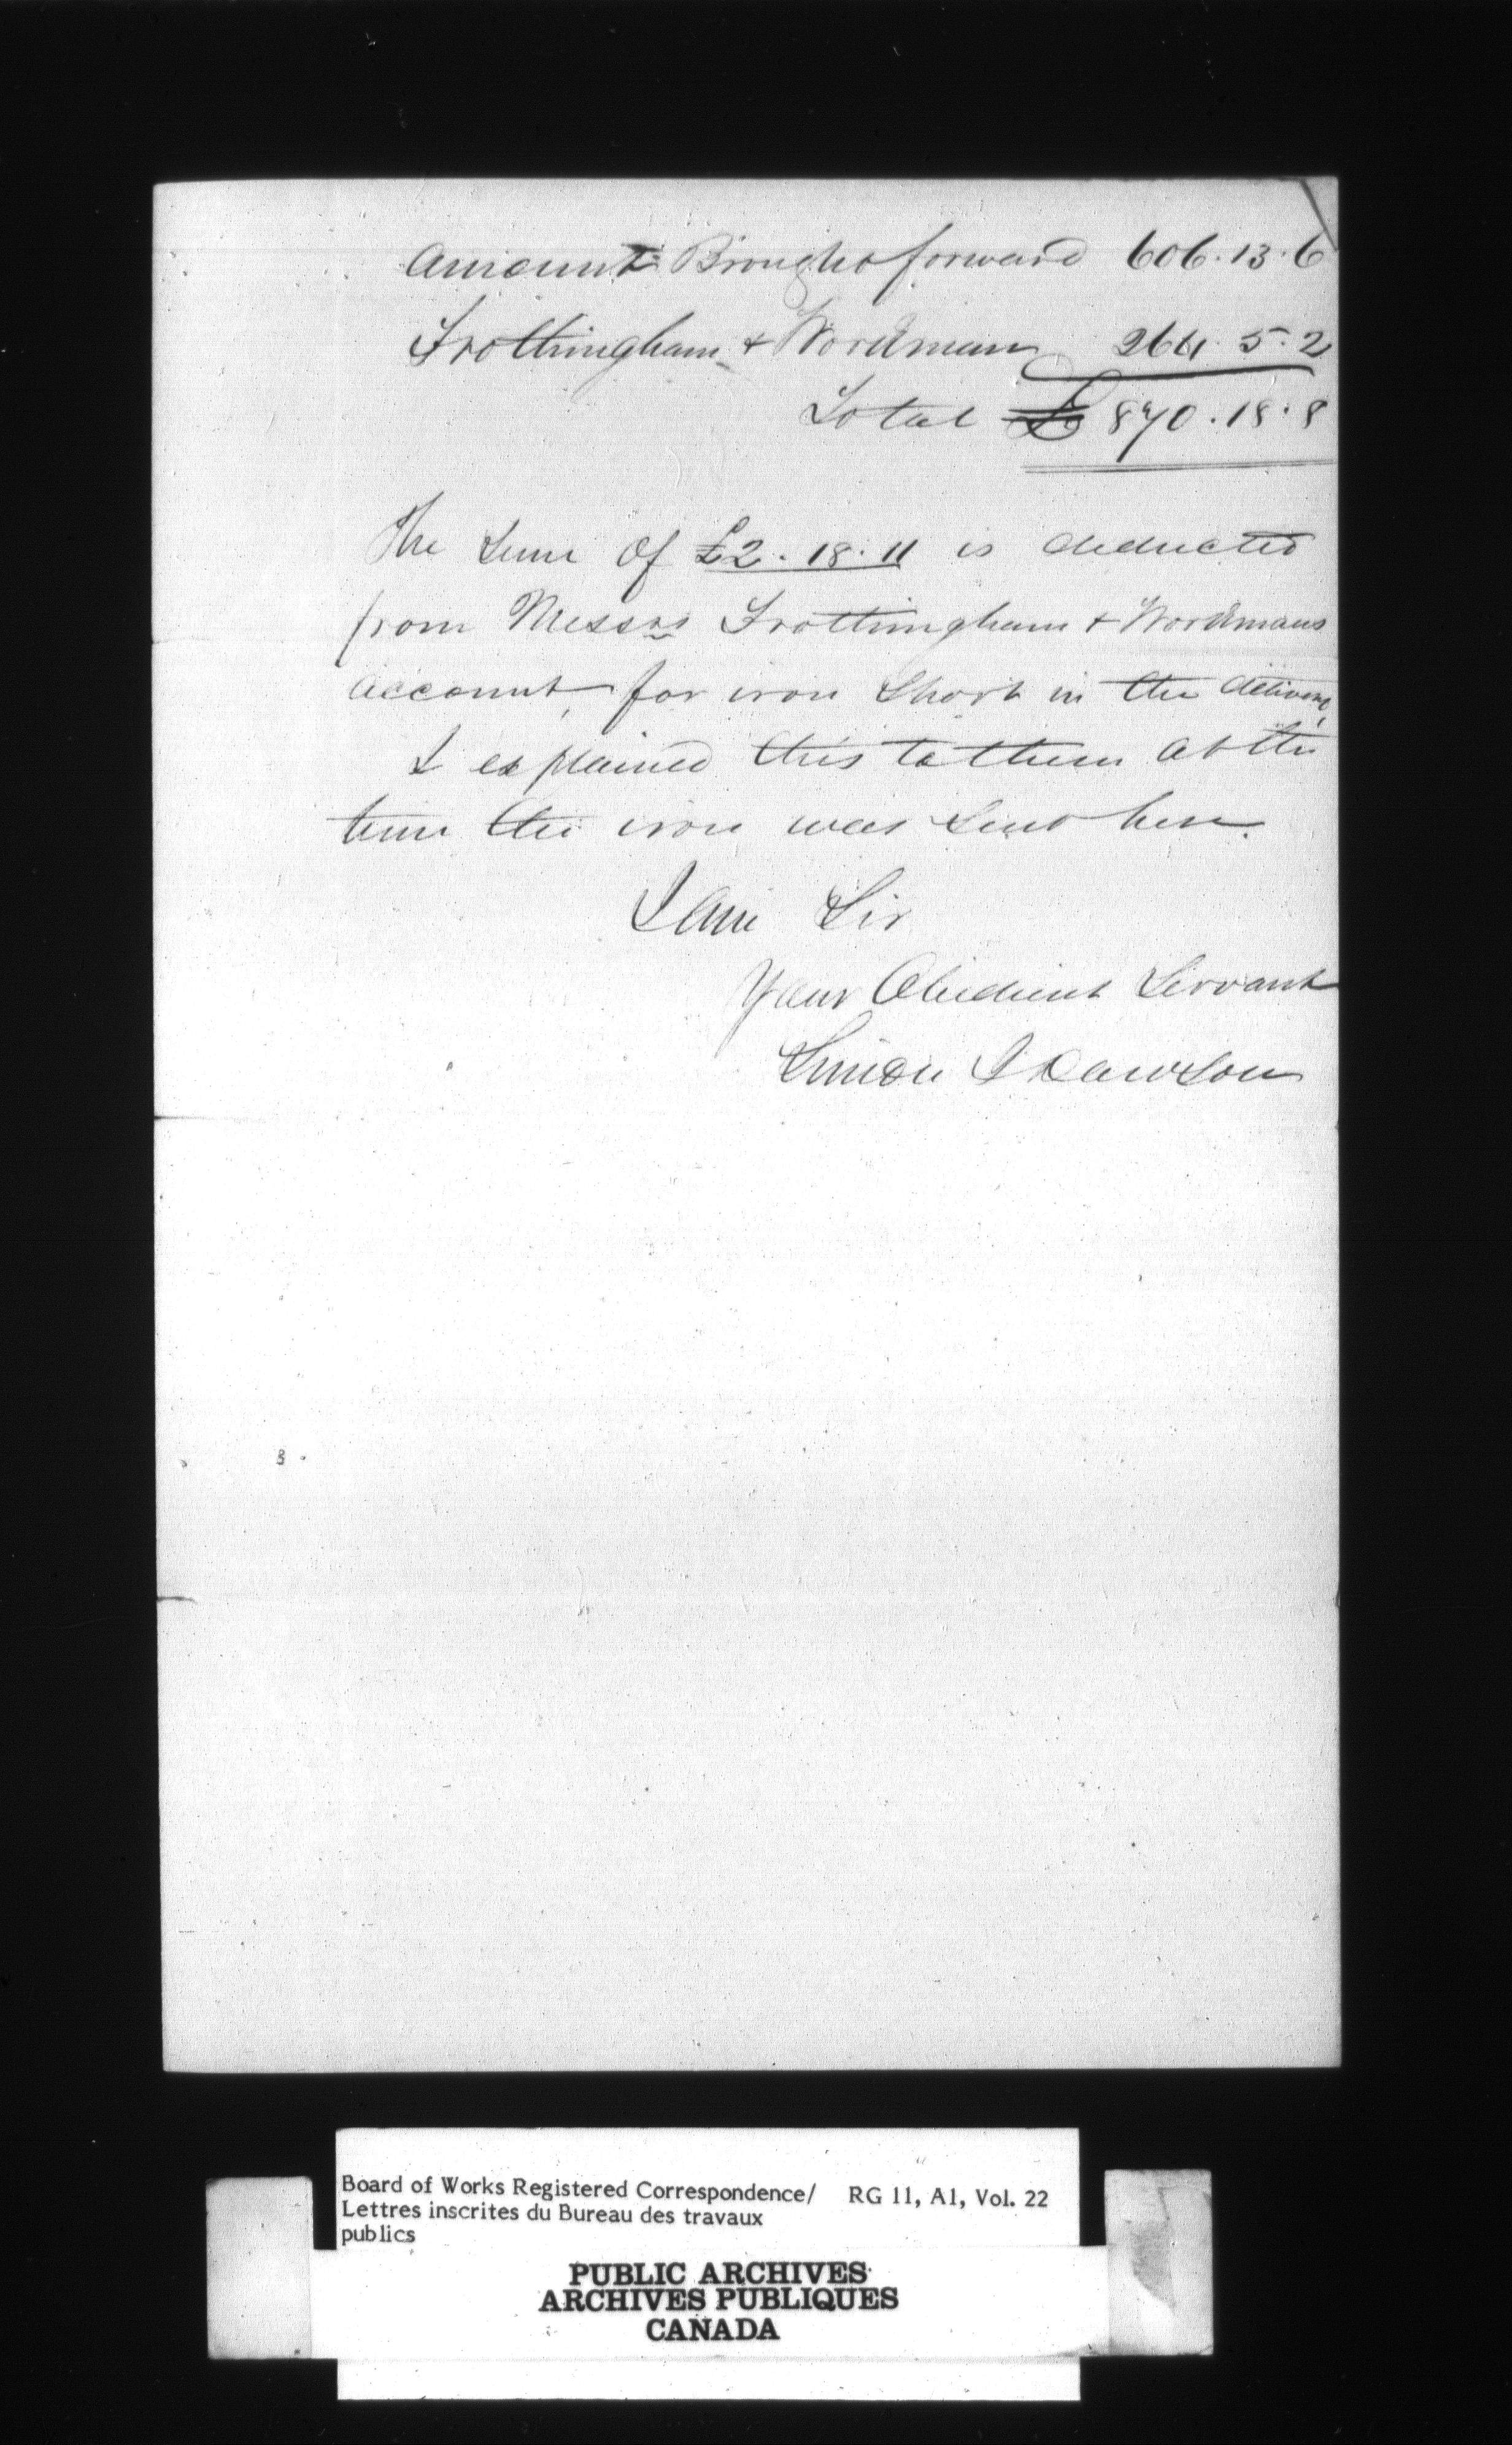 Amount Brought forward 606.13.6
Frothingham & Workman 264.5.2
Total £ 870.18.8
The Sum of £2.18.11 is deducted
from Messrs Frothingham & Workmans
account, for iron Short in the delivery,
I explained this to them at the
time the iron was Sent here.
I am Sir
Your Obedient Servant
Simon J Dawson
Board of Works Registered Correspondence/ RG 11, A1, Vol. 22
Lettres inscrites du Bureau des travaux
publics
PUBLIC ARCHIVES
ARCHIVES PUBLIQUES
CANADA